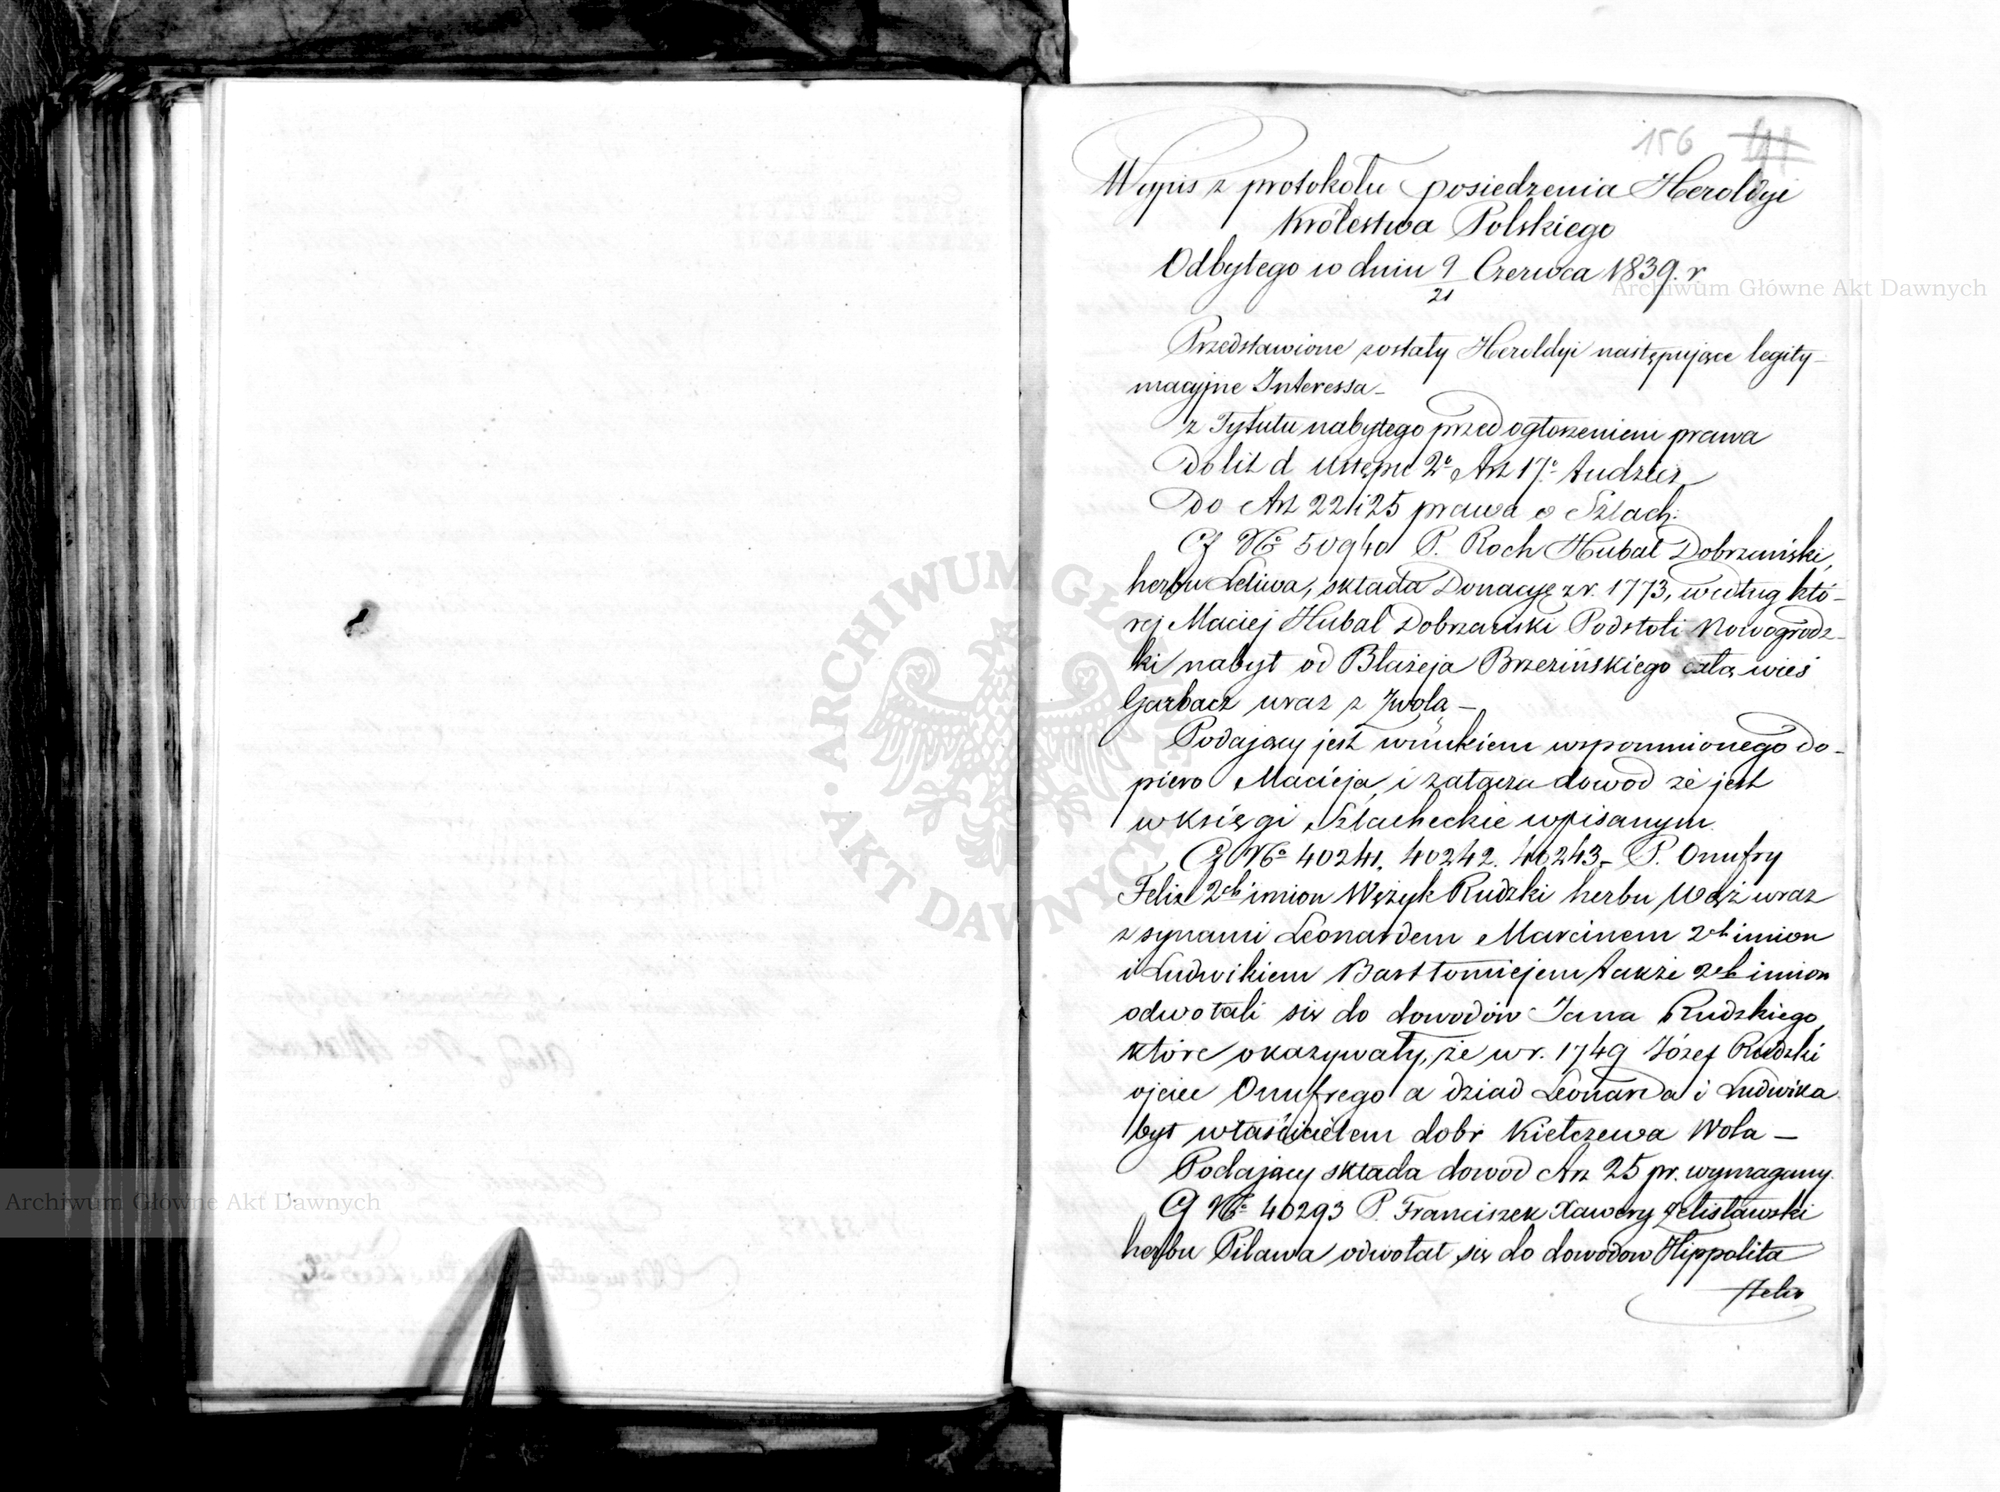 156
Wypis z protokołu posiedzenia Heroldyi
Królestwa Polskiego
Odbytego w dniu 9/21 Czerwca 1839. r
Archiwum Główne Akt Dawnych
Przedstawione zostały Heroldyi następujące legity-
macyjne Interessa-
z Tytułu nabytego przed ogłoszeniem prawa
Do lit d Ustępu 2º Art 17º tudzież
Do Art 22 i 25 prawa o Szlach:
Nº 50940 P. Roch Hubal Dobrzański,
herbu Leliwa, składa Donacyę z r. 1773, według któ-
rej Maciej Hubal Dobrzański Podstoli Nowogrodz-
ki nabył od Błażeja Brzezińskiego całą wieś
Garbacz wraz z Zwolą -
Podający jest wnukiem wspomnionego do-
piero Macieja, i załącza dowód że jest
w księgi Szlacheckie wpisanym.
Nº 40241. 40242. 40243- P. Onufry
Felix 2ch imion Wężyk Rudzki herbu Wąż wraz
z synami Leonardem Marcinem 2ch imion
i Ludwikiem Bartłomiejem także 2ch imion
odwołali się do dowodów Jana Rudzkiego,
które okazywały, że w r. 1749 Józef Rudzki
ojciec Onufrego a dziad Leonarda i Ludwika
był właścicielem dobr Kiełczewa Wola -
Podający składa dowód Art 25 pr. wymagany.
Nº 40293 P. Franciszek Xawery Żelisławski
herbu Pilawa odwołał się do dowodów Hippolita
Żelis
ARCHIWUM GŁÓWNE · AKT DAWNYCH ·
Archiwum Główne Akt Dawnych